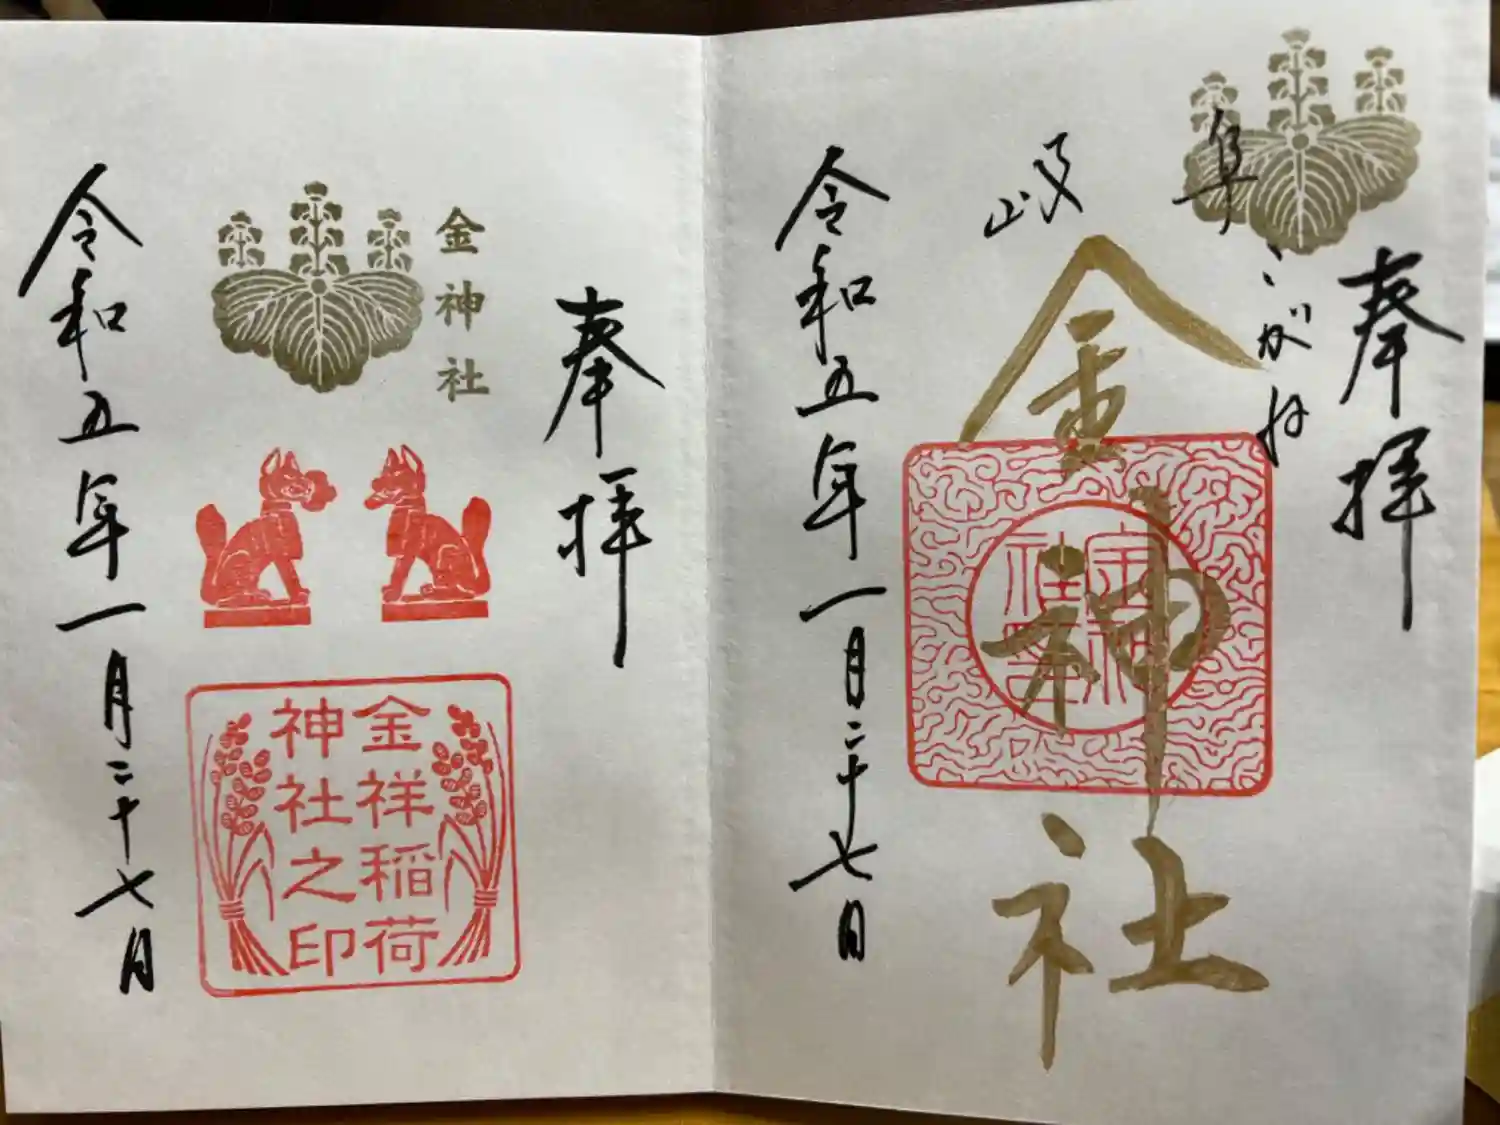 奉拝
岐阜
こがね
金神社
金神社
令和五年一月二十七日
奉拝
金神社
金祥稲荷
神社之印
令和五年一月二十七日